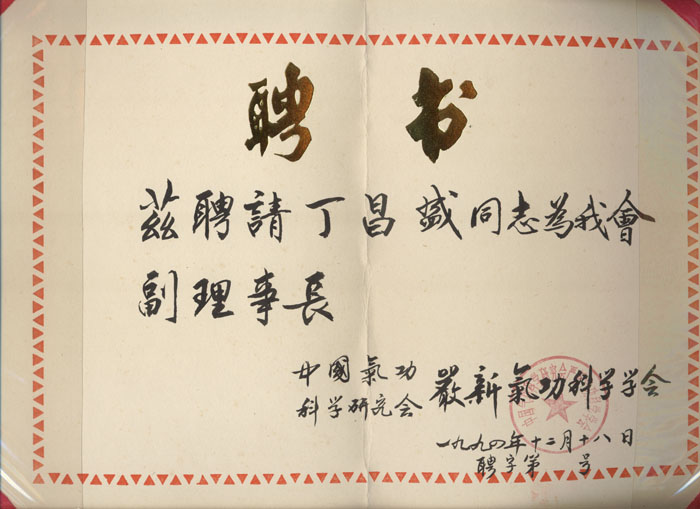 聘书
茲聘請丁昌盛同志為我會
副理事長
中國氣功
科学研究会
嚴新氣功科学学会
一九九四年十二月十八日
聘字第 号